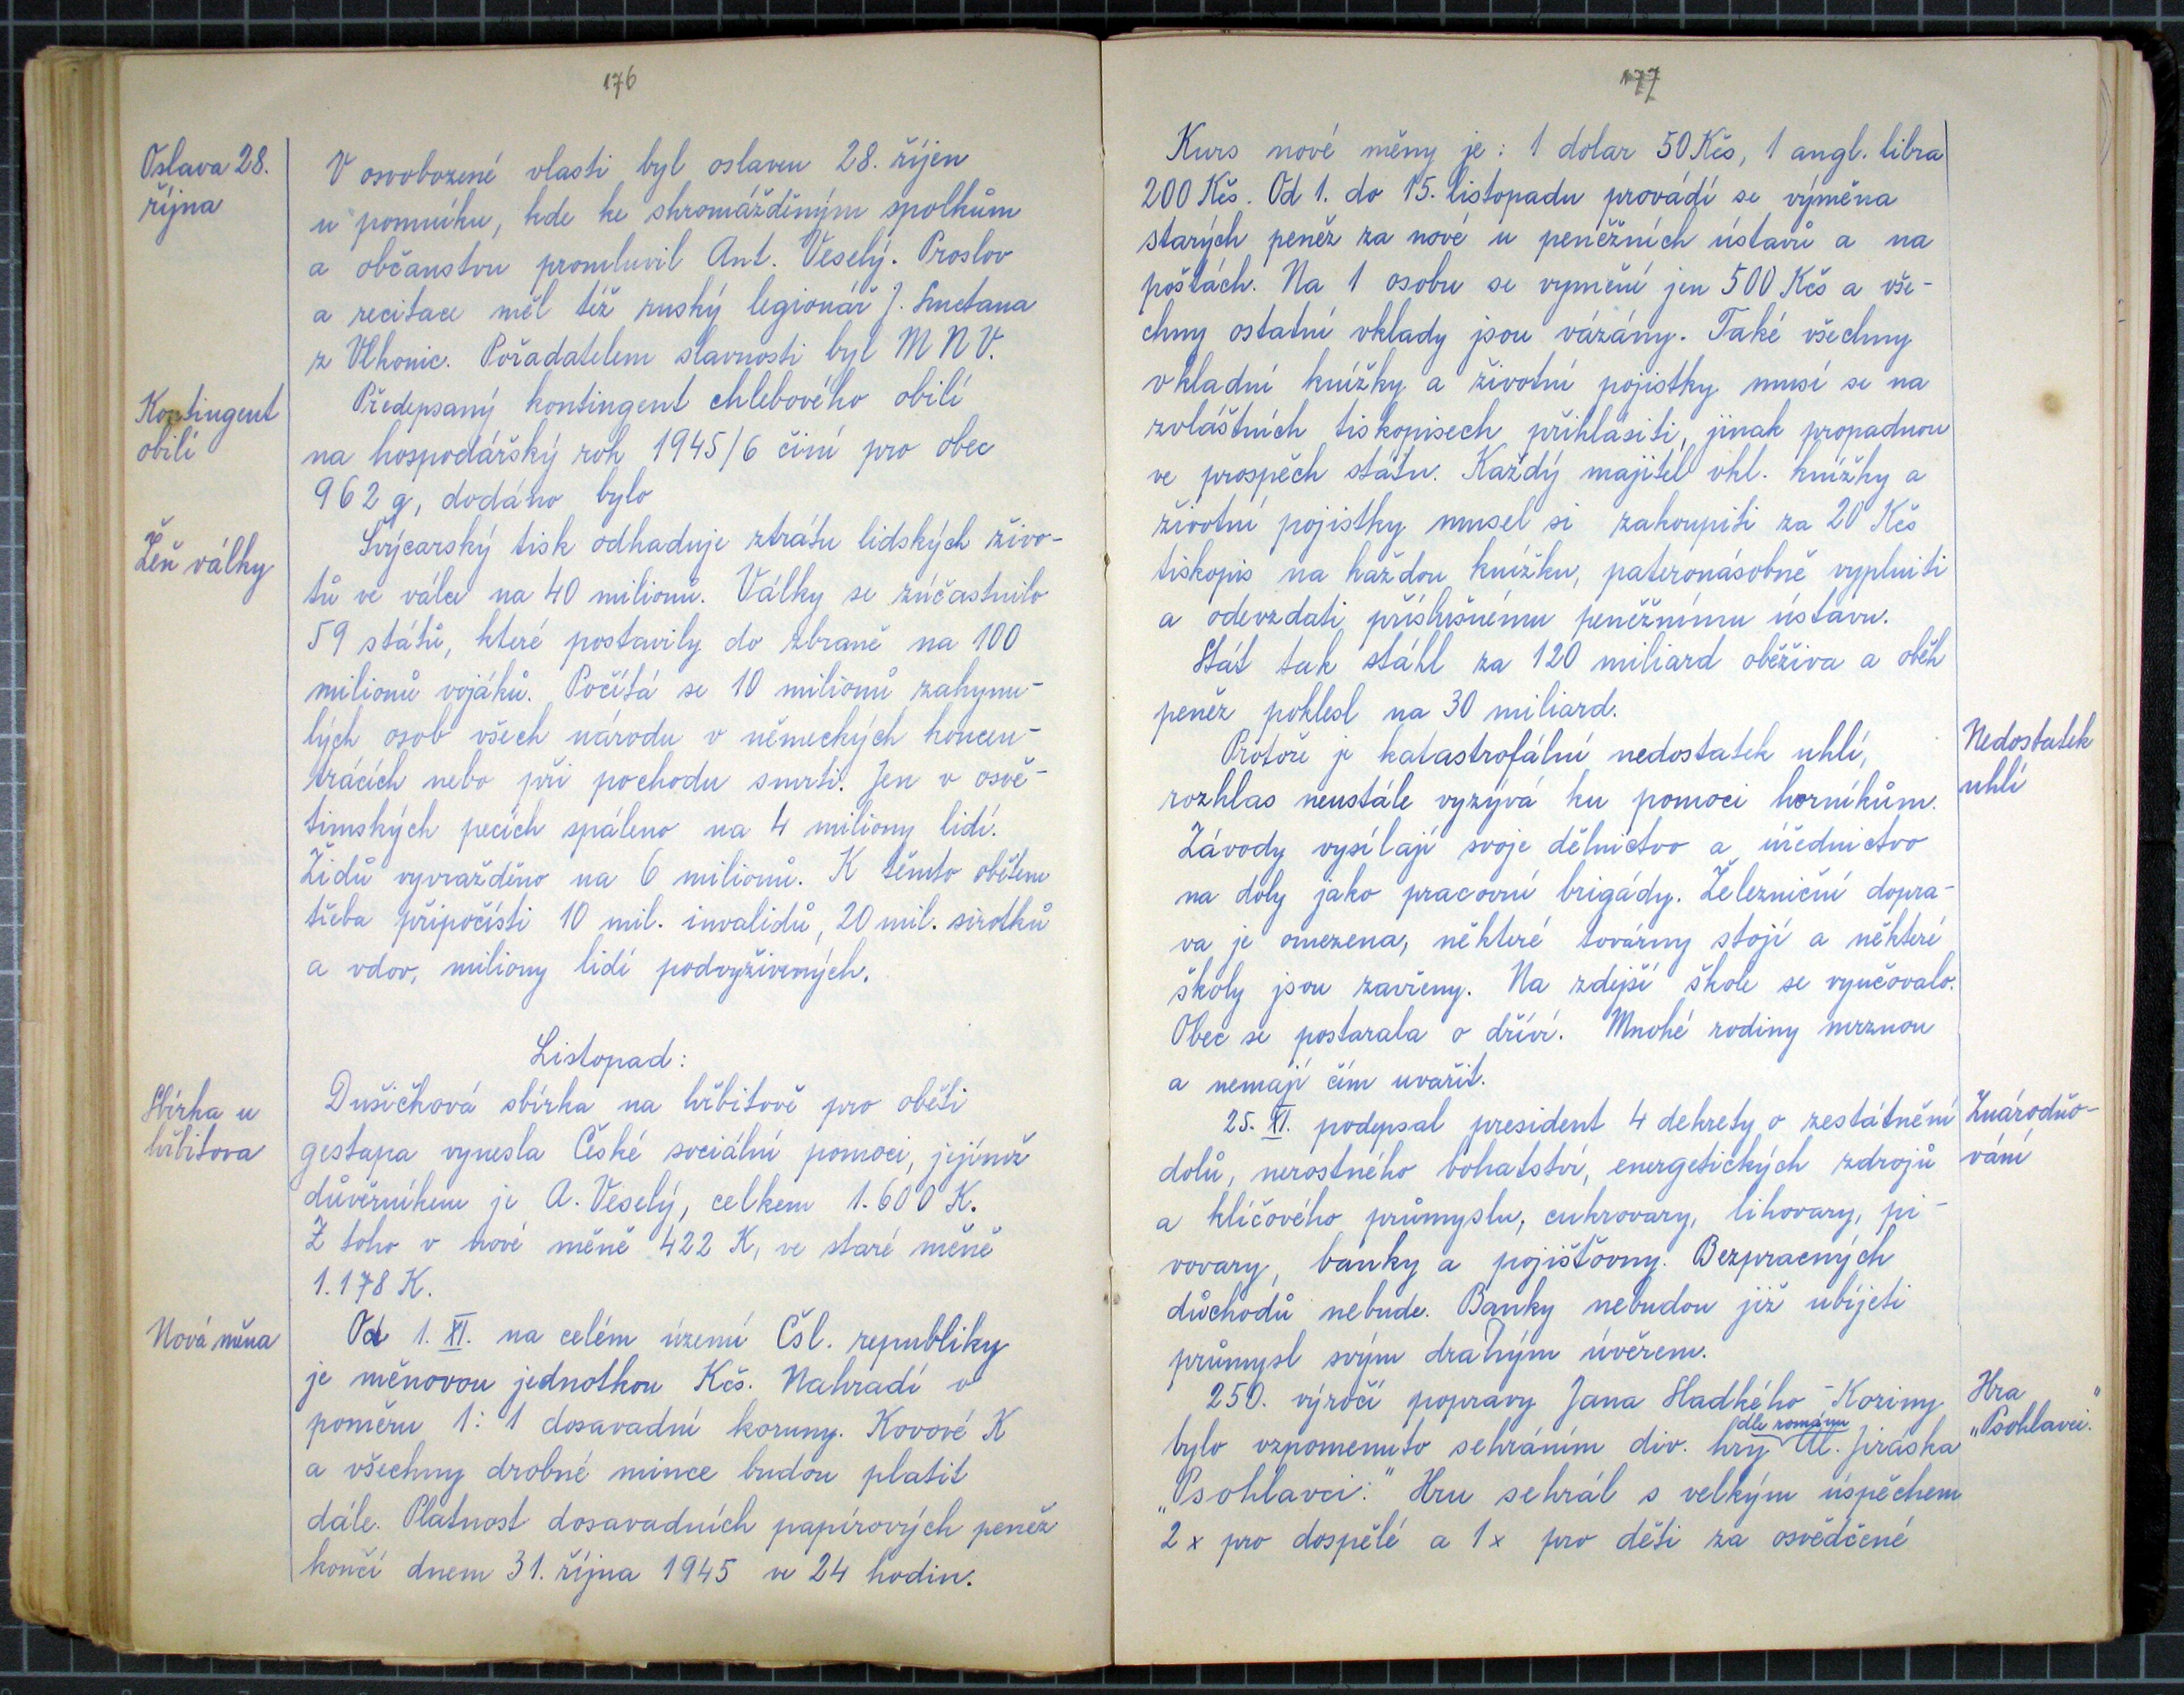 176
Oslava 28.
října
V osvobozené vlasti byl oslaven 28. říjen
u pomníku, kde ke shromážděným spolkům
a občanstvu promluvil Ant. Veselý. Proslov
a recitace měl též ruský legionář J. Smetana
z Vlkonic. Pořadatelem slavnosti byl M N V.
Kontingent
obilí
Předepsaný kontingent chlebového obilí
na hospodářský rok 1945/6 činí pro obec
962 q, dodáno bylo
Žeň války
Švýcarský tisk odhaduje ztrátu lidských živo-
tů ve válce na 40 milionů. Války se zúčastnilo
59 států, které postavily do zbraně na 100
milionů vojáků. Počítá se 10 milionů zahynu-
lých osob všech národu v německých koncen-
trácích nebo při pochodu smrti. Jen v osvě-
timských pecích spáleno na 4 miliony lidí.
Židů vyvražděno na 6 milionů. K těmto obětem
třeba připočísti 10 mil. invalidů, 20 mil. sirotků
a vdov, miliony lidí podvyživených.
Listopad:
Sbírka u
hřbitova
Dušičková sbírka na hřbitově pro oběti
gestapa vynesla České sociální pomoci, jejímž
důvěrníkem je A. Veselý, celkem 1.600 K.
Z toho v nové měně 422 K, ve staré měně
1.178 K.
Nová měna
Od 1. XI. na celém území Čsl. republiky
je měnovou jednotkou Kčs. Nahradí v
poměru 1:1 dosavadní koruny. Kovové K
a všechny drobné mince budou platit
dále. Platnost dosavadních papírových peněz
končí dnem 31. října 1945 ve 24 hodin.
177
Kurs nové měny je: 1 dolar 50 Kčs, 1 angl. libra
200 Kčs. Od 1. do 15. listopadu provádí se výměna
starých peněz za nové u peněžních ústavů a na
poštách. Na 1 osobu se vymění jen 500 Kčs a vše-
chny ostatní vklady jsou vázány. Také všechny
vkladní knížky a životní pojistky musí se na
zvláštních tiskopisech přihlásiti, jinak propadnou
ve prospěch státu. Každý majitel vkl. knížky a
životní pojistky musel si zakoupiti za 20 Kčs
tiskopis na každou knížku, pateronásobně vyplniti
a odevzdati příslušnému peněžnímu ústavu.
Stát tak stáhl za 120 miliard oběživa a oběh
peněz poklesl na 30 miliard.
Nedostatek
uhlí
Protože je katastrofální nedostatek uhlí,
rozhlas neustále vyzývá ku pomoci horníkům.
Závody vysílají svoje dělnictvo a úřednictvo
na doly jako pracovní brigády. Železniční dopra-
va je omezena, některé továrny stojí a některé
školy jsou zavřeny. Na zdejší škole se vyučovalo.
Obec se postarala o dříví. Mnohé rodiny mrznou
a nemají čím uvařit.
Znárodňo-
vání
25. XI. podepsal president 4 dekrety o zestátnění
dolů, nerostného bohatství, energetických zdrojů
a klíčového průmyslu, cukrovary, lihovary, pi-
vovary, banky a pojišťovny. Bezpracných
důchodů nebude. Banky nebudou již ubíjeti
průmysl svým drahým úvěrem.
Hra
„Psohlavci."
250. výročí popravy Jana Sladkého - Koziny
bylo vzpomenuto sehráním div. hry dle románu Al. Jiráska
„Psohlavci." Hru sehrál s velkým úspěchem
2 x pro dospělé a 1 x pro děti za osvědčené